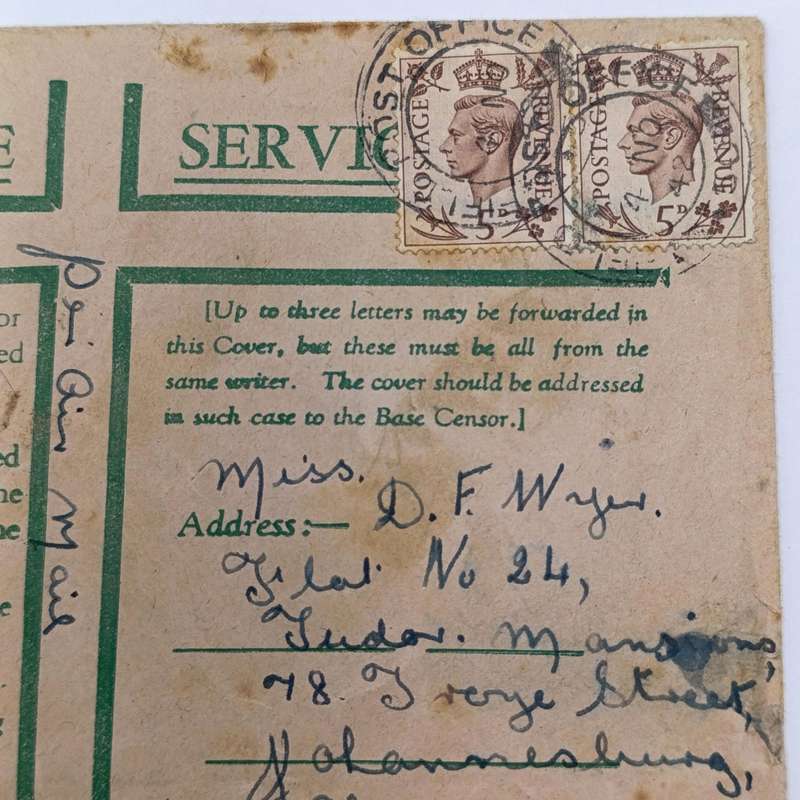 POST OFFICE
POSTAGE REVENUE
5D
POSTAGE REVENUE
5D
2 NO 42
E SERVIC
per Air Mail
or
ed
ed
he
he
e
[Up to three letters may be forwarded in
this Cover, but these must be all from the
same writer. The cover should be addressed
in such case to the Base Censor.]
Miss. D. F. Wyer.
Address:—
Flat No 24,
Tudor. Mansions,
78. Troye Street,
Johannesburg,